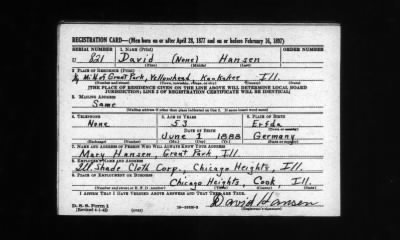 REGISTRATION CARD—(Men born on or after April 28, 1877 and on or before February 16, 1897)
SERIAL NUMBER 1. NAME (Print) ORDER NUMBER
U 821 David (None) Hansen
(First) (Middle) (Last)
2. PLACE OF RESIDENCE (Print)
4 Mi. N. of Grant Park, Yellowhead Kankakee Ill.
(Number and street) (Town, township, village, or city) (County) (State)
[THE PLACE OF RESIDENCE GIVEN ON THE LINE ABOVE WILL DETERMINE LOCAL BOARD
JURISDICTION; LINE 2 OF REGISTRATION CERTIFICATE WILL BE IDENTICAL]
3. MAILING ADDRESS
Same
[Mailing address if other than place indicated on line 2. If same insert word same]
4. TELEPHONE 5. AGE IN YEARS 6. PLACE OF BIRTH
None 53
DATE OF BIRTH (Town or county)
June 1 1888 Germany
(Exchange) (Number) (Mo.) (Day) (Yr.) (State or country)
7. NAME AND ADDRESS OF PERSON WHO WILL ALWAYS KNOW YOUR ADDRESS
Mary Hansen, Grant Park, Ill.
8. EMPLOYER'S NAME AND ADDRESS
Ill. Shade Cloth Corp., Chicago Heights, Ill.
9. PLACE OF EMPLOYMENT OR BUSINESS
Chicago Heights, Cook Ill.
(Number and street or R. F. D. number) (Town) (County) (State)
I AFFIRM THAT I HAVE VERIFIED ABOVE ANSWERS AND THAT THEY ARE TRUE.
D. S. S. Form 1
(Revised 4-1-42) David Hansen